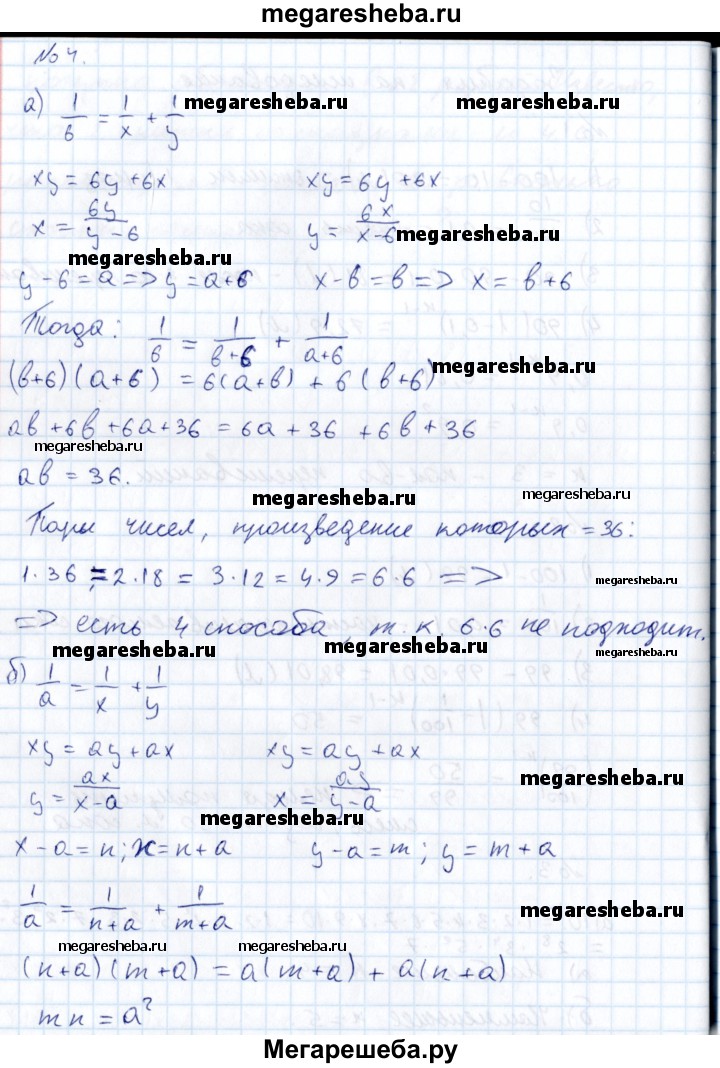 megaresheba.ru
№4.
а) 1/6 = 1/x + 1/y
megaresheba.ru megaresheba.ru
xy = 6y + 6x xy = 6y + 6x
x = 6y/(y - 6) y = 6x/(x - 6)
megaresheba.ru
megaresheba.ru
y - 6 = a => y = a + 6 x - 6 = в => x = в + 6
Тогда: 1/6 = 1/(в + 6) + 1/(a + 6)
megaresheba.ru
(в+6)(a+6) = 6(a+в) + 6(в+6)
aв + 6в + 6a + 36 = 6a + 36 + 6в + 36
megaresheba.ru
aв = 36.
megaresheba.ru megaresheba.ru
Пары чисел, произведение которых = 36:
1·36 = 2·18 = 3·12 = 4·9 = 6·6 =>
megaresheba.ru
=> есть 4 способа, т.к. 6·6 не подходит.
megaresheba.ru megaresheba.ru megaresheba.ru
б) 1/a = 1/x + 1/y
xy = ay + ax xy = ay + ax
y = ax/(x - a) x = ay/(y - a)
megaresheba.ru
megaresheba.ru
x - a = n; x = n + a y - a = m; y = m + a
1/a = 1/(n + a) + 1/(m + a)
megaresheba.ru
megaresheba.ru megaresheba.ru
(n+a)(m+a) = a(m+a) + a(n+a)
mn = a²
Мегарешеба.ру